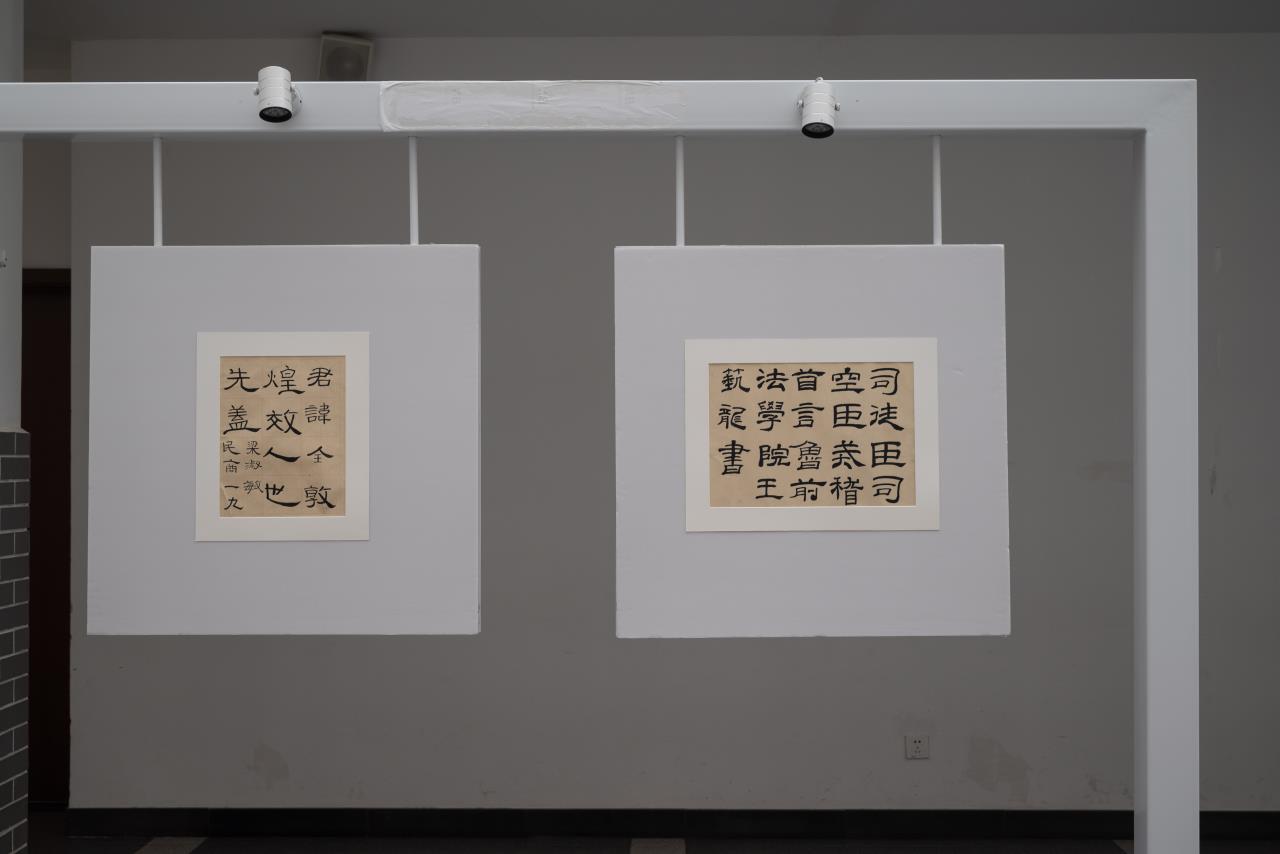 君諱全敦
煌效人也
先蓋
梁淑敏
民商一九
司徒臣司
空臣戒稽
首言魯前
法學院王
蓺龍書